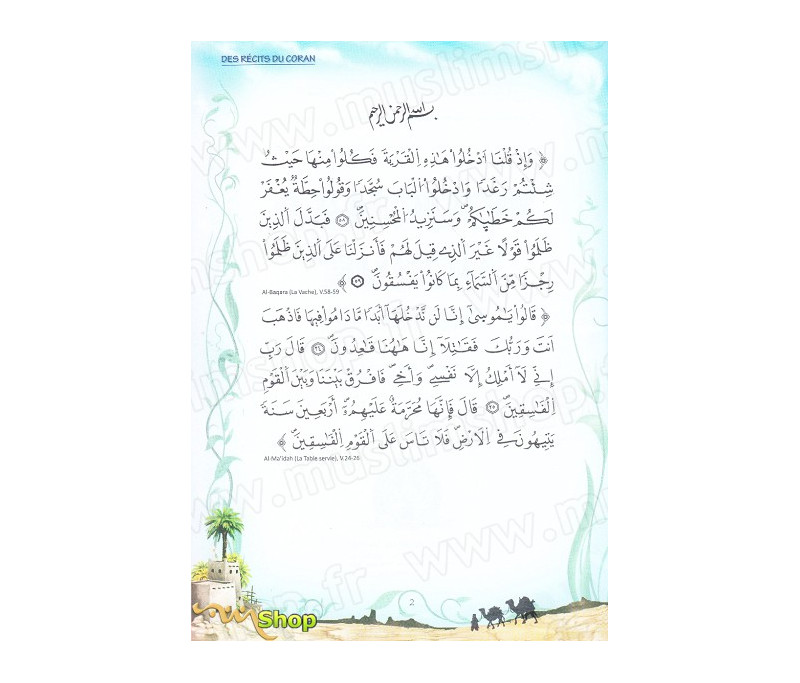 DES RÉCITS DU CORAN
بسم الله الرحمن الرحيم
﴿ وَإِذْ قُلْنَا اَدْخُلُواْ هَٰذِهِ اِلْقَرْيَةَ فَكُلُواْ مِنْهَا حَيْثُ
شِئْتُمْ رَغَدًا وَادْخُلُواْ الْبَابَ سُجَّدًا وَقُولُواْ حِطَّةٌ يُغْفَرْ
لَكُمْ خَطَٰيَٰكُمْ وَسَنَزِيدُ الْمُحْسِنِينَ ٥٨ فَبَدَّلَ اَلذِينَ
ظَلَمُواْ قَوْلًا غَيْرَ اَلذِے قِيلَ لَهُمْ فَأَنزَلْنَا عَلَى اَلذِينَ ظَلَمُواْ
رِجْزًا مِّنَ اَلسَّمَآءِ بِمَا كَانُواْ يَفْسُقُونَ ٥٩ ﴾
Al-Baqara (La Vache), V.58-59
﴿ قَالُواْ يَٰمُوسَىٰ إِنَّا لَن نَّدْخُلَهَآ أَبَدًا مَّا دَامُواْ فِيهَا فَاذْهَبَ
اَنتَ وَرَبُّكَ فَقَٰتِلَآ إِنَّا هَٰهُنَا قَٰعِدُونَ ٢٤ قَالَ رَبِّ
إِنِّے لَآ أَمْلِكُ إِلَّا نَفْسِے وَأَخِے فَافْرُقْ بَيْنَنَا وَبَيْنَ اَلْقَوْمِ
اِلْفَٰسِقِينَ ٢٥ قَالَ فَإِنَّهَا مُحَرَّمَةٌ عَلَيْهِمُۥٓ أَرْبَعِينَ سَنَةً
يَتِيهُونَ فِے اِلْأَرْضِ فَلَا تَاسَ عَلَى اَلْقَوْمِ اِلْفَٰسِقِينَ ﴾
Al-Ma'idah (La Table servie), V.24-26
2
Shop
www.muslimshop.fr